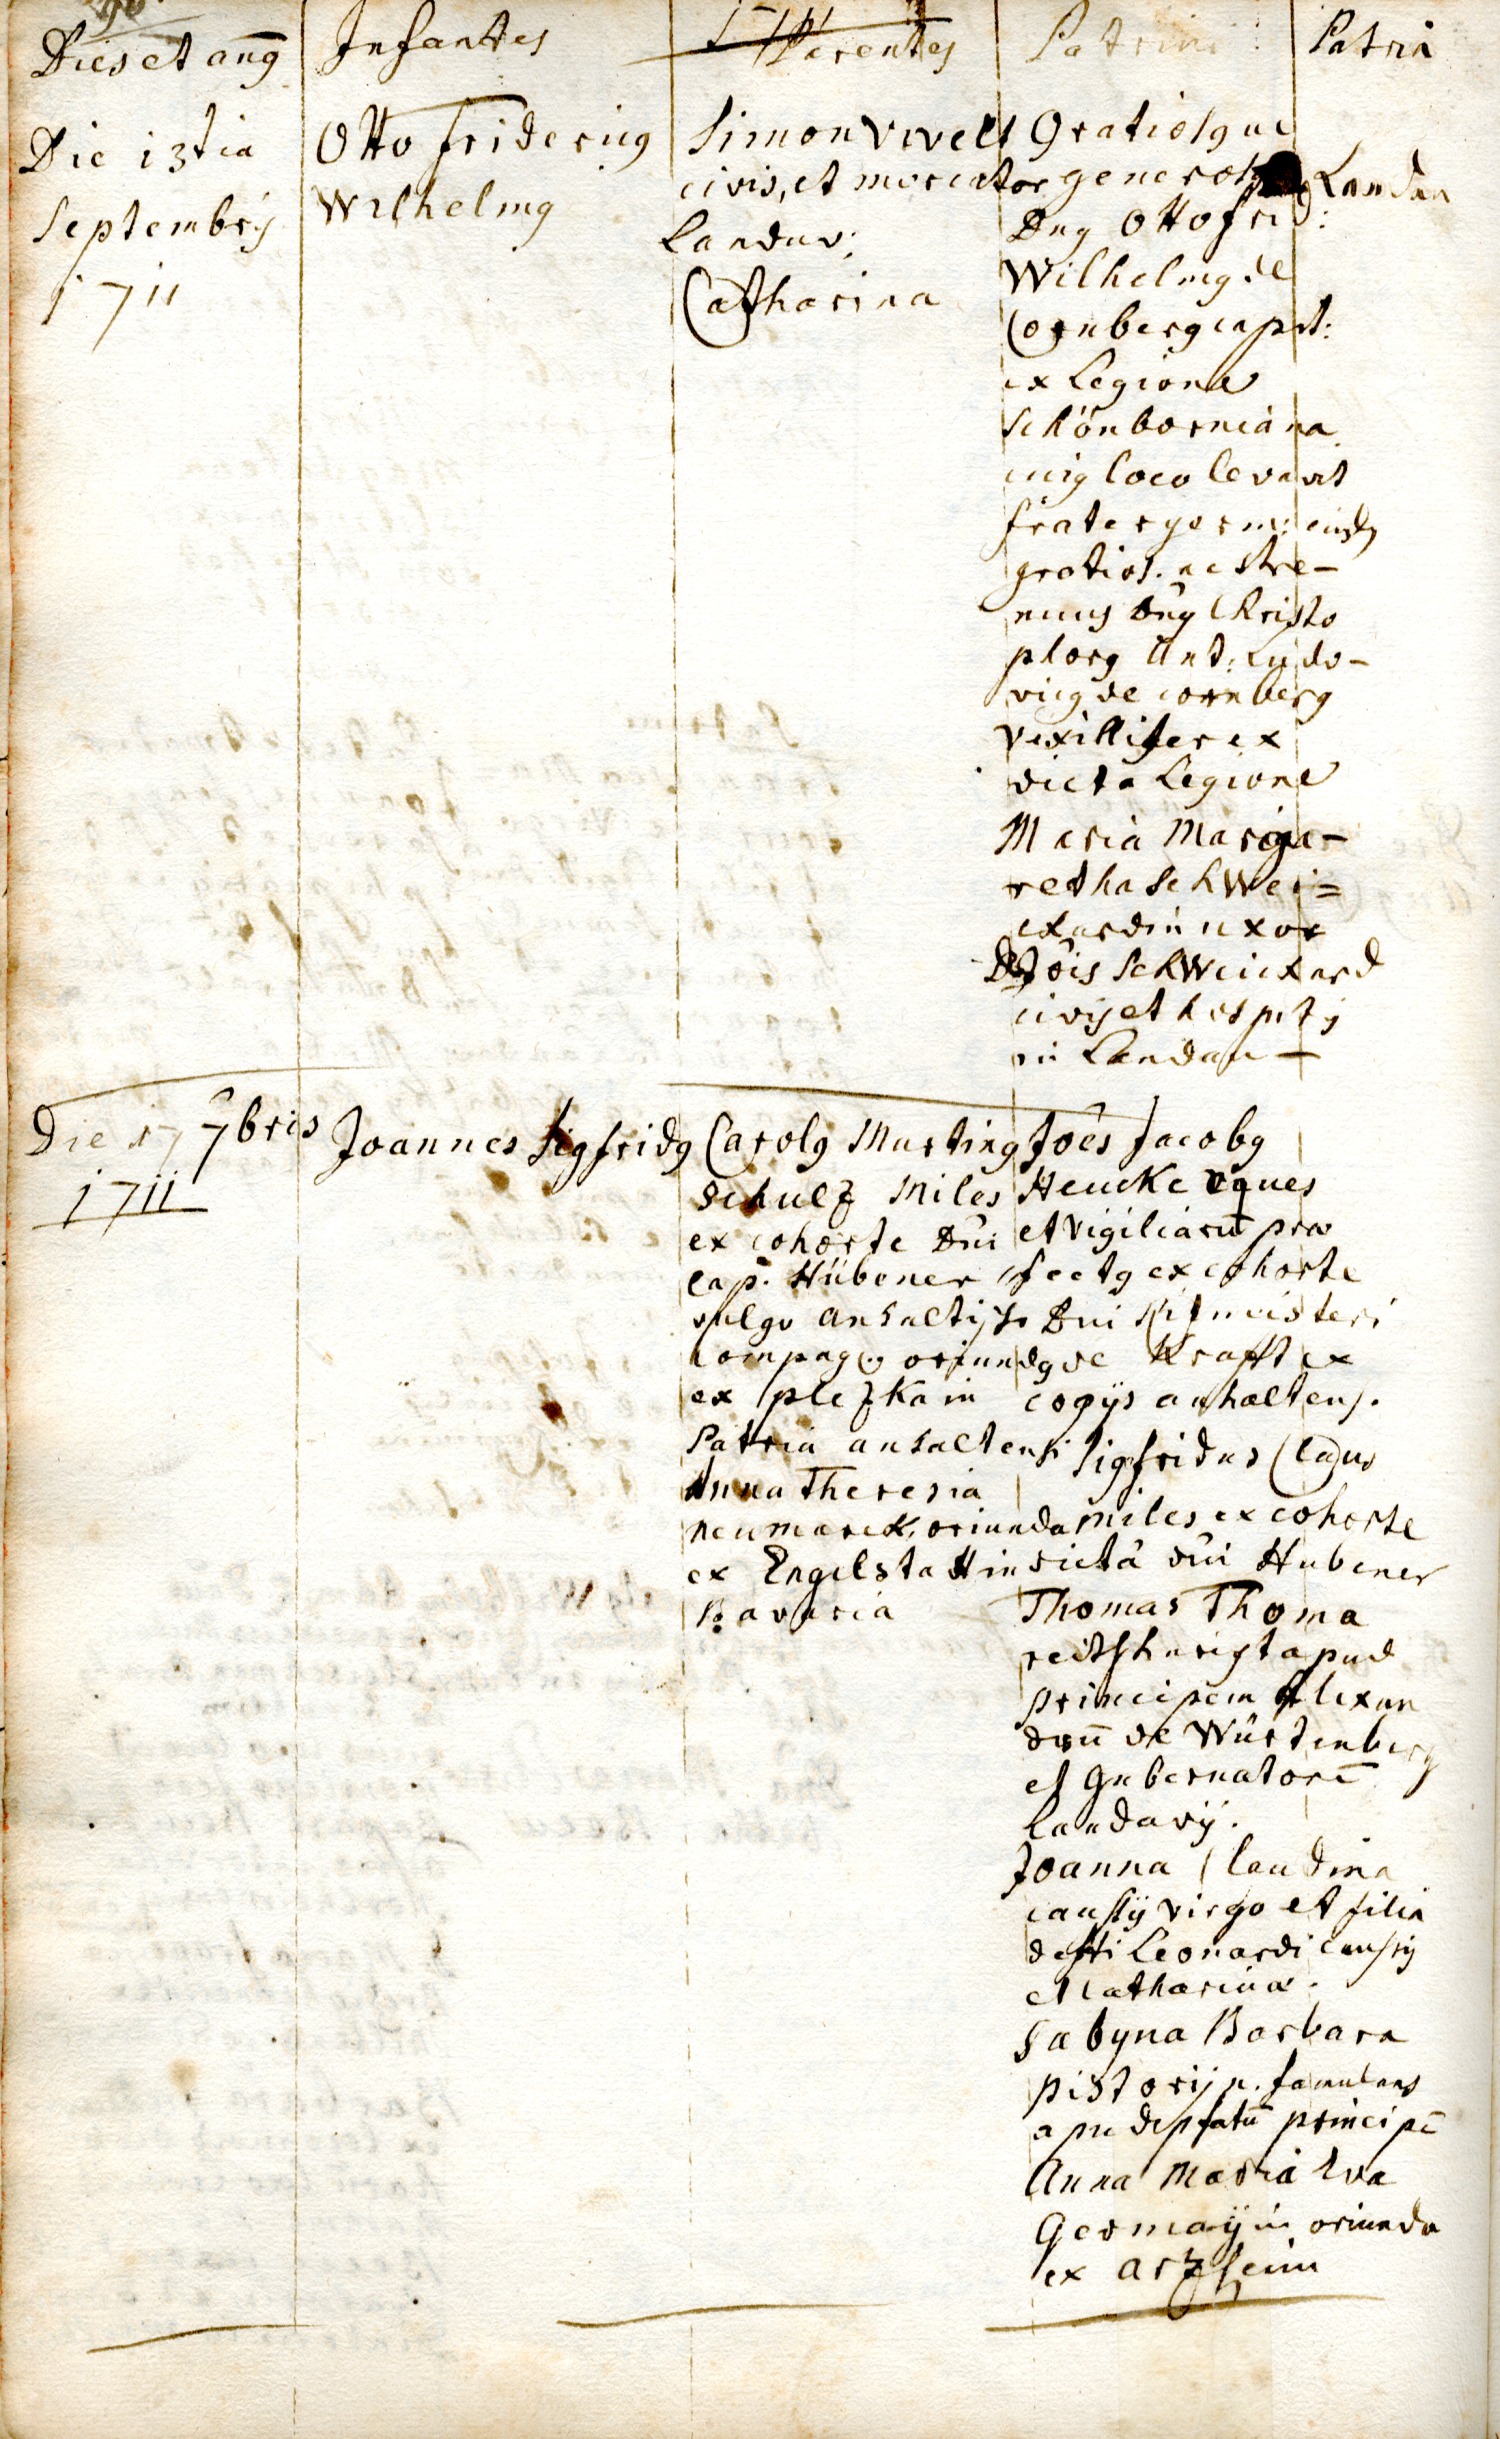 Dies et anng
Infantes
Parentes
Patrini
Patria
Die 13tia
Septembrÿ
1711
Otto Fridericg
Wilhelmg
Simon Vevelt
civis, et mercator
Landav:
Catharina
Gratiosg ac
generosg
Landau
Dng Otto frid:
Wilhelmg de
Cornberg capit:
ex Legione
Schönborniana
cuig loco levavit
frater germ: eiusdem
gratios. ac stre-
nuus Dn̄g Christo
phorg Ant: Ludo-
vicg de Cornberg
vexillifer ex
dicta Legione
Maria Marga-
retha Schwei=
ckardin uxor
Jōis Schweickard
civis et hospitis
in Landau
Die 17 7bris
1711
Joannes Sigfridg
Carolg Marting
Schulz Miles
ex cohorte Dn̄i
Cap. Hübener
vulgo anhaltisch
compag: oriundg
ex plezkain
Patria anhaltensi
Anna Theresia
neumarck, oriunda
ex Engelstatt in
Bavaria
Joēs Jacobg
Heucke Eques
et vigiliarū præ
fectg ex cohorte
Dni Ritmeisteri
de Krafft ex
copÿs anhaltens.
Sigfridus Claus
miles ex cohorte
dictâ dn̄i Hubener
Thomas Thoma
reitschmist apud
principem Alexan
drū de Würtenberg
et Gubernatorē
Landavÿ.
Joanna Claudina
caussÿ virgo et filia
defti Leonardi caussÿ
et Catharinæ.
Sabyna Barbara
pistorÿn. famulans
apud pfatū principē
Anna Maria Eva
Germaÿin oriunda
ex arzheim